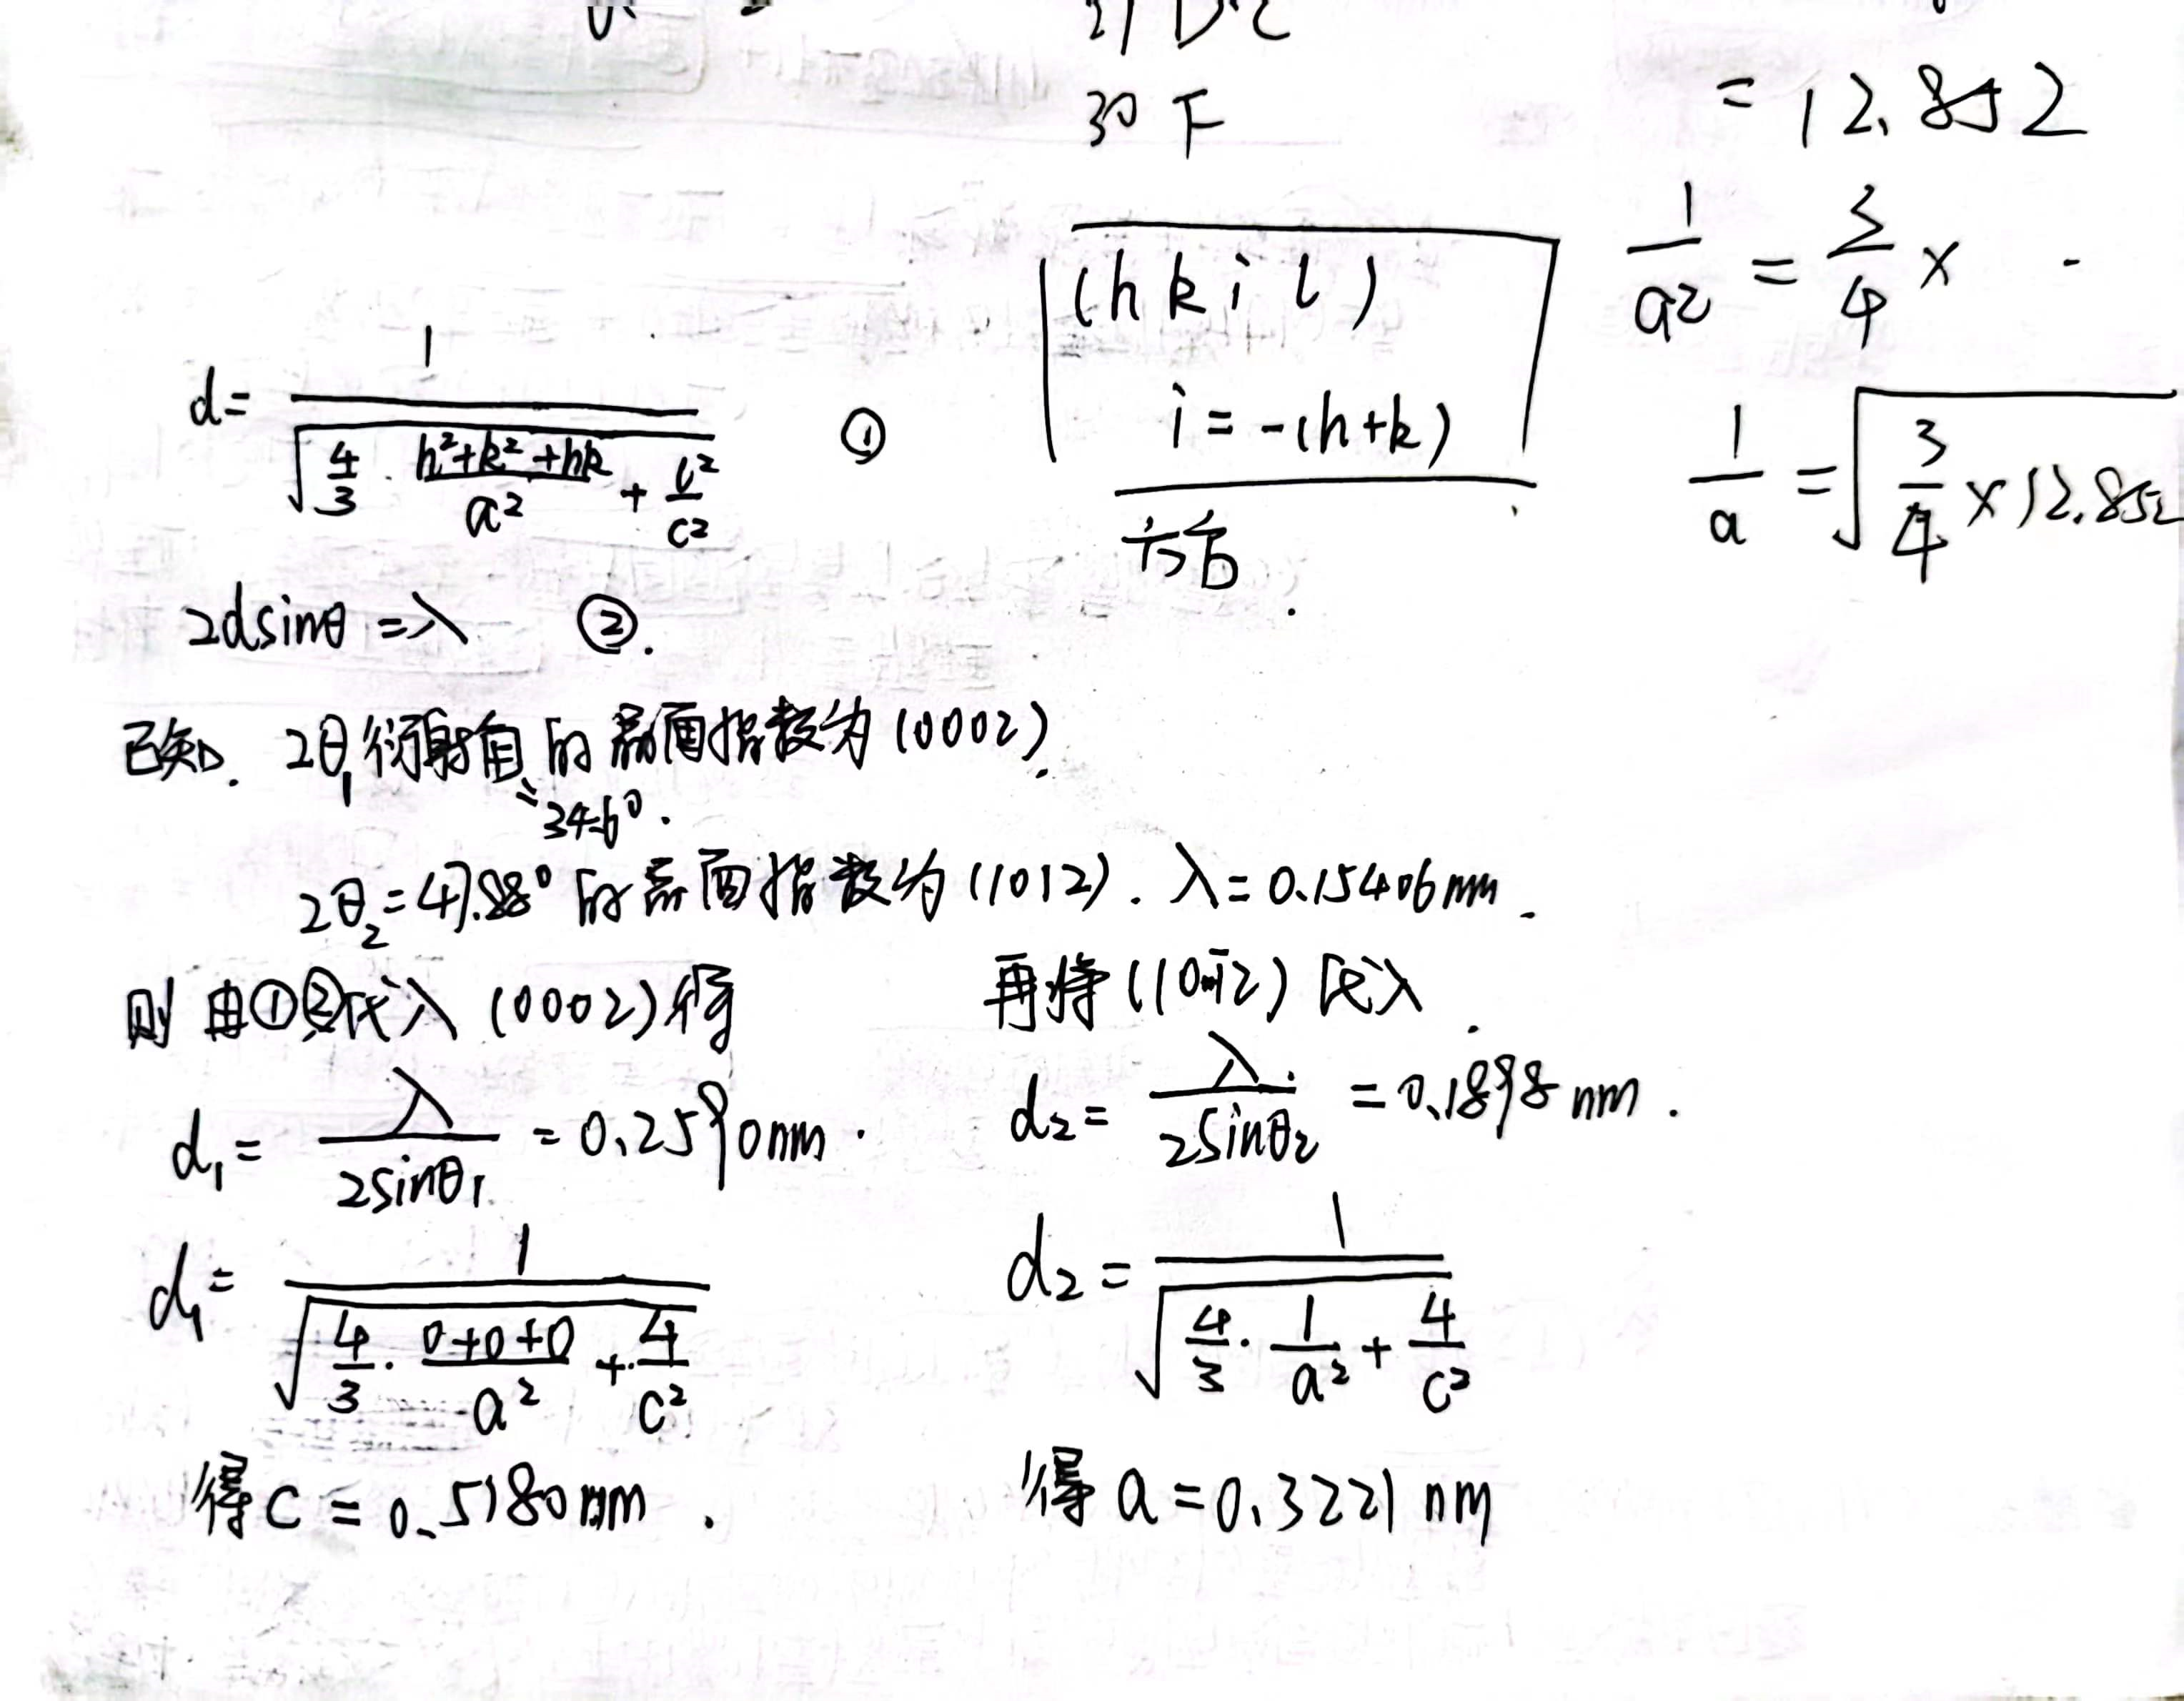 30 F
= 12.852
(h k i l)
i = -(h+k)
六角
1/a2 = 3/4 ×
1/a = √(3/4 × 12.852
d = 1/√(4/3 · (h²+k²+hk)/a² + l²/c²) ①
2dsinθ = λ ②.
已知. 2θ₁衍射角的晶面指数为 (0002).
=34.6°.
2θ₂=47.88°的晶面指数为 (1012). λ=0.15406nm.
则由①②代入 (0002) 得
d₁ = λ/2sinθ₁ = 0.2590nm.
d₁ = 1/√(4/3 · (0+0+0)/a² + 4/c²)
得 c = 0.5180nm.
再将 (101̄2) 代入.
d₂ = λ/2sinθ₂ = 0.1898nm.
d₂ = 1/√(4/3 · 1/a² + 4/c²)
得 a = 0.3221 nm